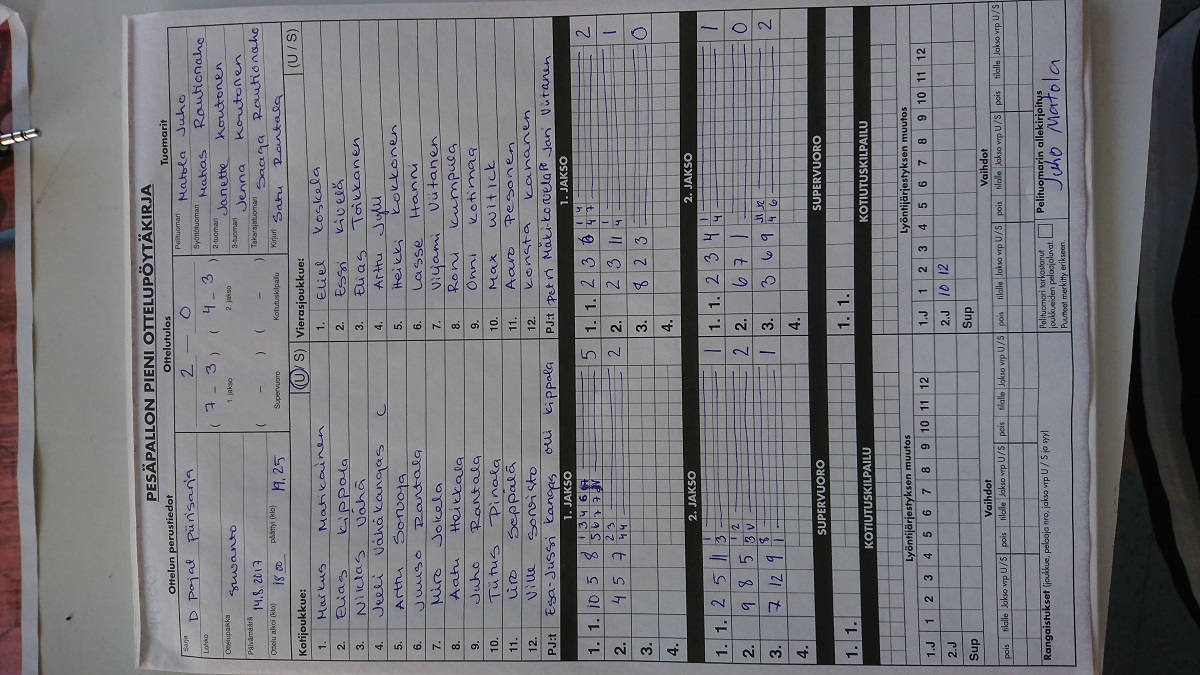 PESÄPALLON PIENI OTTELUPÖYTÄKIRJA
Ottelun perustiedot
Ottelutulos
Tuomarit
Sarja D pojat piirisarja
Lohko
Ottelupaikka Suvanto
Päivämäärä 14.8.2017
Ottelu alkoi (klo) 18.00 päättyi (klo) 19.25
2 — 0
( 7 – 3 ) ( 4 – 3 )
1. jakso 2. jakso
( – ) ( – )
Supervuoro Kotiutuskilpailu
Pelituomari Matola Juho
Syöttötuomari Matias Rautionaho
2-tuomari Janette Koutonen
3-tuomari Jenna Koutonen
Takarajatuomari Saaga Rautionaho
Kirjuri Satu Rantala
Kotijoukkue: (U / S)
1. Markus Matikainen
2. Elias Kippola
3. Niklas Vähä
4. Jeeli Vähäkangas C
5. Arttu Sorvoja
6. Juuso Rantala
7. Niro Jokela
8. Aatu Haikkala
9. Juho Rantala
10. Tiitus Pinola
11. Iiro Seppälä
12. Ville Sorsisto
PJ:t Esa-Jussi Kangas Olli Kippola
Vierasjoukkue: (U / S)
1. Eliel Keskela
2. Essi Kivelä
3. Elias Toikkanen
4. Attu Jylli
5. Heikki Kokkonen
6. Lasse Hanni
7. Viljami Viitanen
8. Roni Kumpula
9. Onni Kotimaa
10. Max Witick
11. Aaro Pesonen
12. Konsta Kananen
PJ:t Petri Mäki-Korvela Jari Viitanen
1. JAKSO 1. JAKSO
1. 1. 10 5 8 5
2. 4 5 7 2
3.
4.
1. 1. 2 3 6 2
2. 2 3 11 1
3. 8 2 3 0
4.
2. JAKSO 2. JAKSO
1. 1. 2 5 11 1
2. 9 8 5 2
3. 7 12 9 1
4.
1. 1. 2 3 4 1
2. 6 7 1 0
3. 3 6 9 2
4.
SUPERVUORO SUPERVUORO
1. 1. 1. 1.
KOTIUTUSKILPAILU KOTIUTUSKILPAILU
Lyöntijärjestyksen muutos Lyöntijärjestyksen muutos
1.J 1 2 3 4 5 6 7 8 9 10 11 12
2.J
Sup
1.J 1 2 3 4 5 6 7 8 9 10 11 12
2.J 10 12
Sup
Vaihdot Vaihdot
pois tilalle Jakso vrp U / S pois tilalle Jakso vrp U / S pois tilalle Jakso vrp U / S
pois tilalle Jakso vrp U / S pois tilalle Jakso vrp U / S pois tilalle Jakso vrp U / S
Rangaistukset (joukkue, pelaaja nro, jakso vrp U / S ja syy)
Pelituomari tarkastanut
joukkueiden pelaajaluvat.
Puutteet merkitty erikseen.
Pelituomarin allekirjoitus
Juho Matola